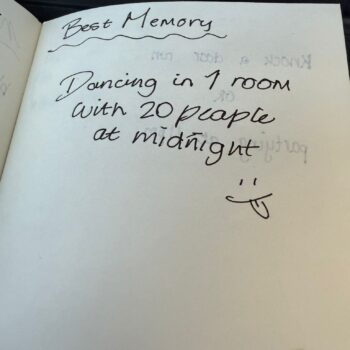 Best Memory
Dancing in 1 room
with 20 people
at midnight